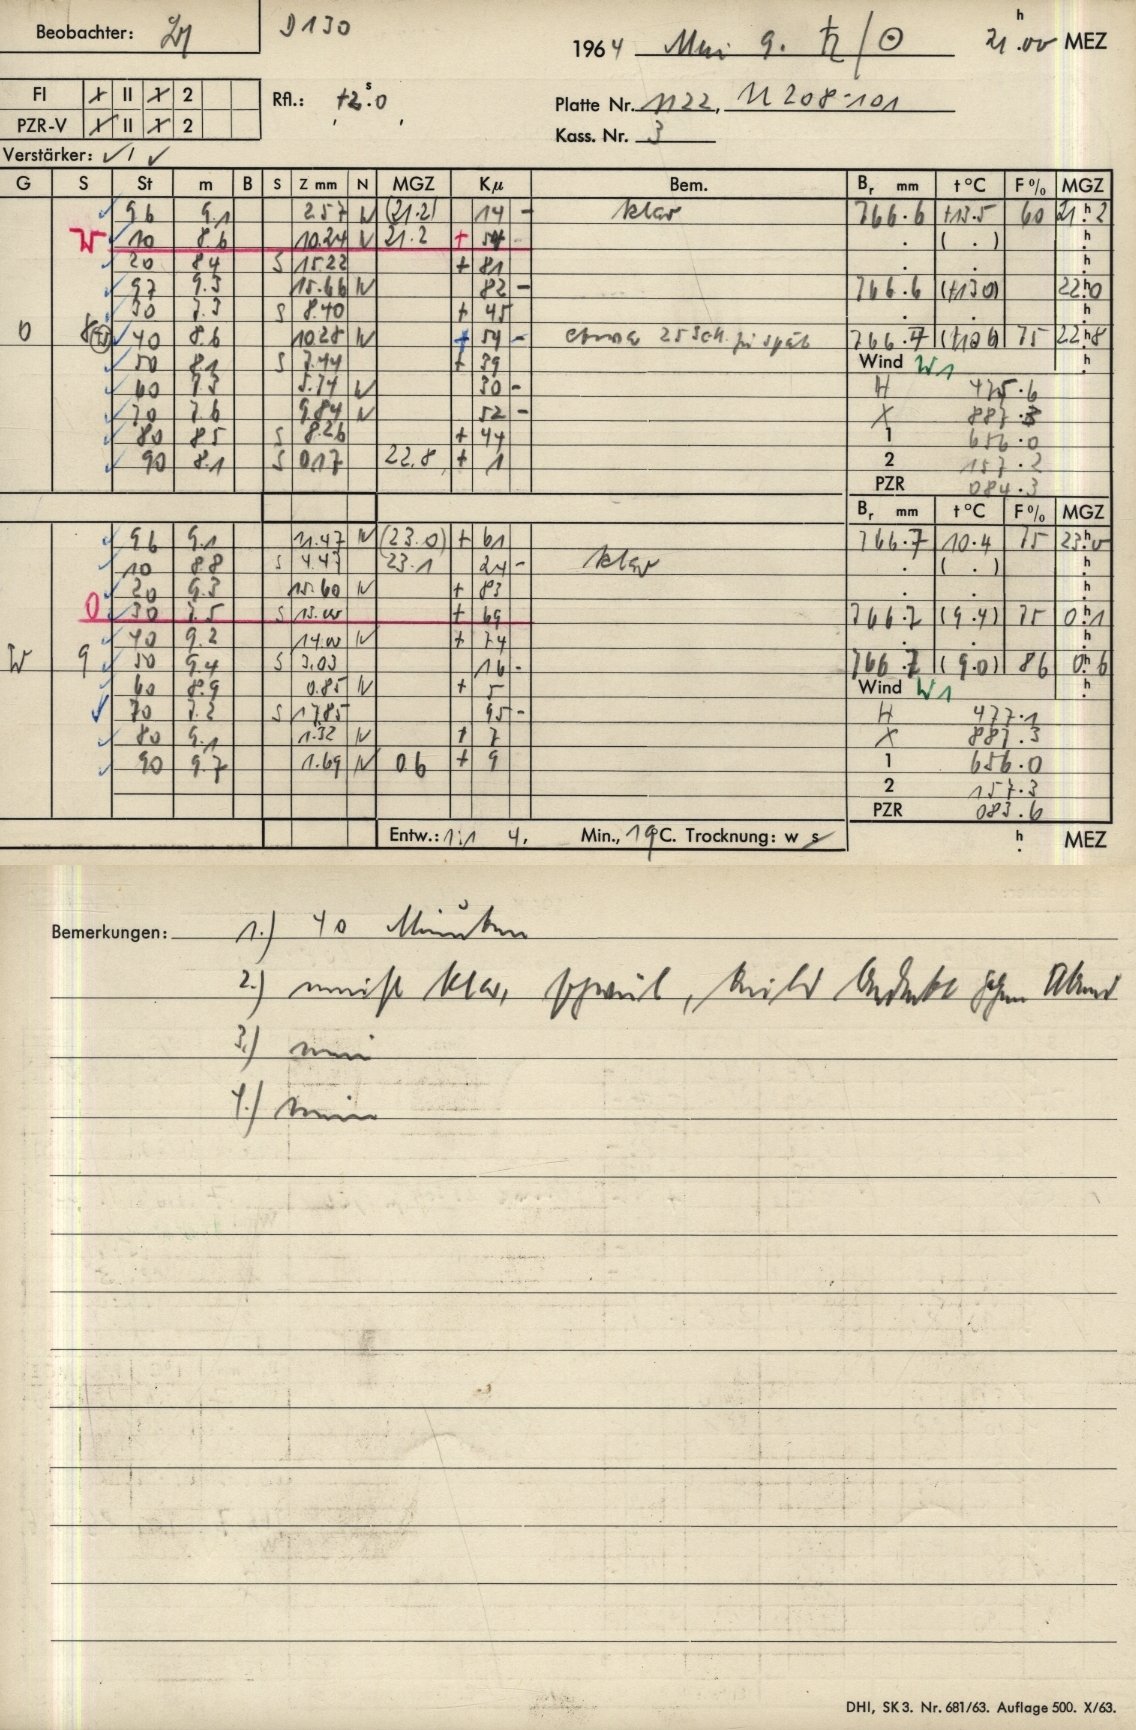 Beobachter:
D130
1964 Mai 9. ♄/☉ 21.00 h MEZ
FI I II 1 2
PZR-V I II 1 2
Rfl.: +2.0 s
Platte Nr. 1122, U 208-101
Kass. Nr. 3
Verstärker: ✓ / ✓
G S St m B S Z mm N MGZ Kµ Bem. Br mm t °C F % MGZ
✓ 96 9.1 2.57 N (21.2) 14 - klar 766.6 +13.5 60 21.2 h
W ✓ 10 8.6 10.24 N 21.2 + 54 - . ( . ) h
✓ 20 8.4 S 15.22 + 81 . . h
✓ 97 9.3 15.66 N 82 - 766.6 (+13.0) 22.0 h
✓ 30 7.3 S 8.40 + 45 . . h
O 8 ✓ 40 8.6 10.28 N + 54 - etwa 25 Sek. zu spät 766.7 75 22.8 h
✓ 50 8.1 S 7.44 + 39 Wind W1 h
✓ 60 7.3 5.74 N 30 - H 475.6
✓ 70 7.6 9.84 N 52 - X 887.3
✓ 80 8.5 S 8.26 + 44 1 656.0
✓ 90 8.1 S 0.17 22.8 + 1 2 157.2
PZR 084.3
Br mm t °C F % MGZ
✓ 96 9.1 11.47 N (23.0) + 61 766.7 10.4 75 23.0 h
✓ 10 8.8 S 4.47 23.1 24 - klar . ( . ) h
✓ 20 9.3 15.60 N + 83 . . h
O ✓ 30 7.5 S 13.00 + 69 766.7 (9.4) 75 0.1 h
✓ 40 9.2 14.00 N + 74 . . h
W 9 ✓ 50 9.4 S 3.03 16 - 766.7 (9.0) 86 0.6 h
✓ 60 8.9 0.85 N + 5 Wind W1 h
✓ 70 7.2 S 17.85 95 - H 477.1
✓ 80 9.1 1.32 N + 7 X 887.3
✓ 90 9.7 1.69 N 0.6 + 9 1 656.0
2 157.3
PZR 083.6
Entw.: 1:1 4. Min., 19°C. Trocknung: w s h MEZ
Bemerkungen: 1.) 40 Minuten
2.) meist klar, schwül, Wild gegen Abend
3.) nein
4.) nein
DHI, SK 3. Nr. 681/63. Auflage 500. X/63.